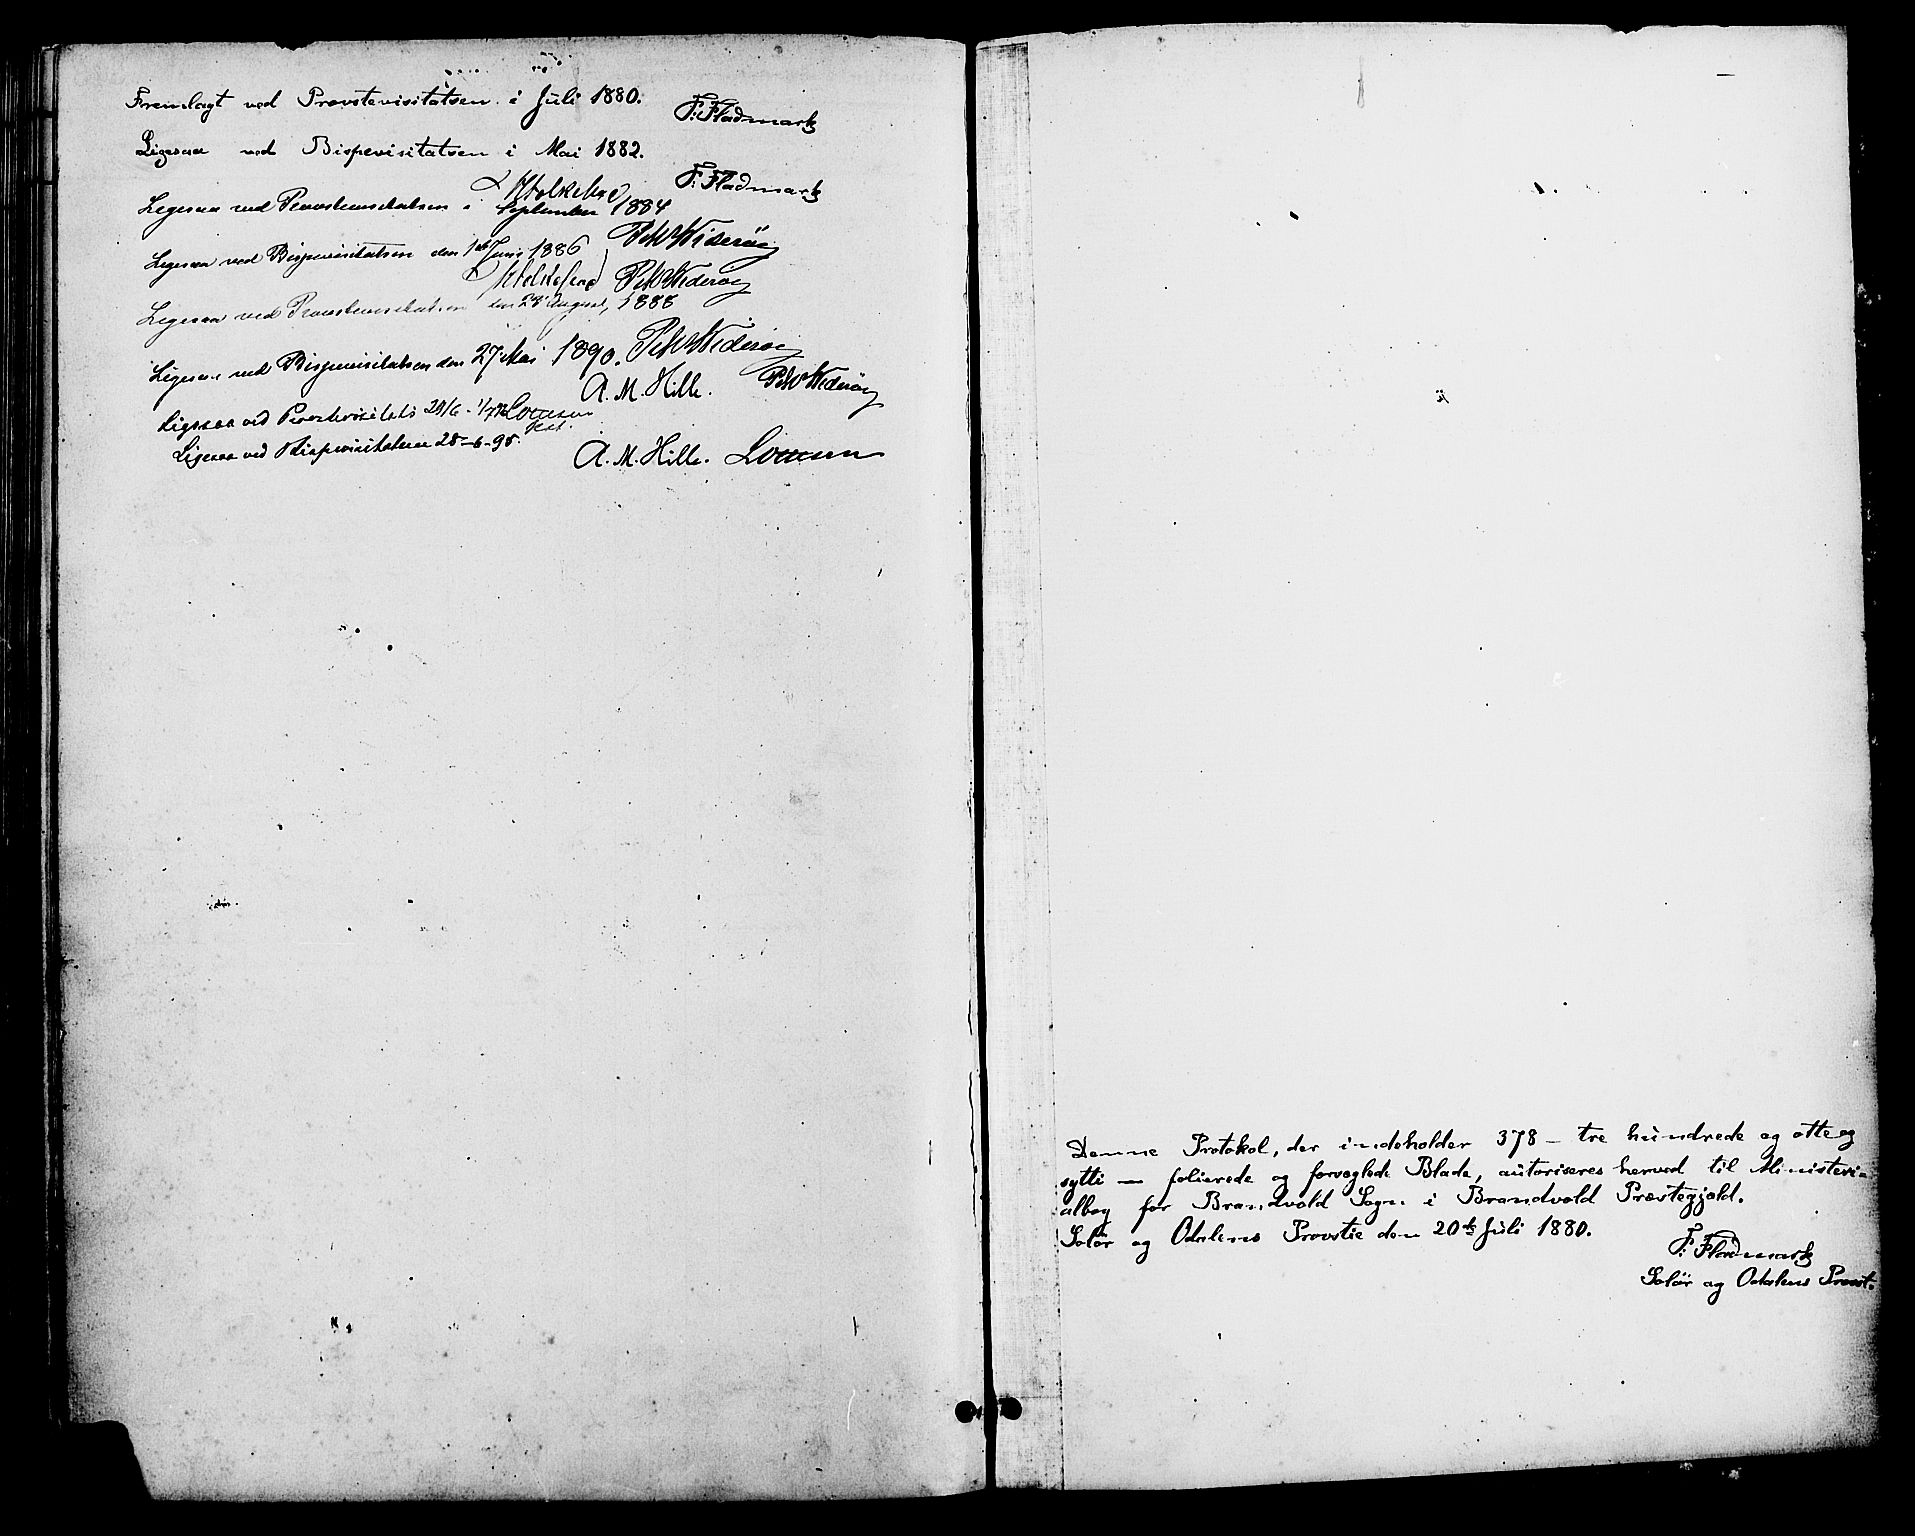 Fremlagt ved Provstevisitatsen i Juli 1880.
F: Fladmark
Ligesaa ved Bispevisitatsen i Mai 1882.
F: Fladmark
Ligesaa ved Provstevisitatsen i September 1884
Ligesaa ved Bispevisitatsen den 1ste Juni 1886
Ligesaa ved Provstevisitatsen den 28 August, 1888
Ligesaa ved Bispevisitatsen den 27 Mai 1890.
A. M. Hille.
Ligesaa ved Provstevisitats 29/6 - 1/7
Ligesaa ved Bispevisitatsen 28-6-95.
A. M. Hille.
Denne Protokol, der indeholder 378 - tre hundrede og otte og
sytti - folierede og forseglede Blade, autoriseres herved til Ministeri-
albog for Brandvold Sogn i Brandvold Præstegjæld.
Solør og Odalens Provsti den 20de Juli 1880.
F: Fladmark
Solør og Odalens Provst.